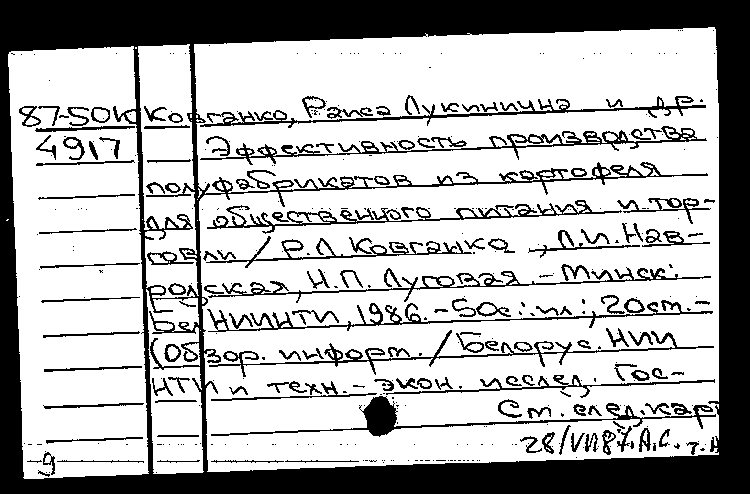 87-50к Ковганко, Раиса Лукинична и др.
4917 Эффективность производства
полуфабрикатов из картофеля
для общественного питания и тор-
говли / Р.Л. Ковганко, Л.И. Нав-
родская, Н.П. Луговая. - Минск:
БелНИИНТИ, 1986. - 50с.: ил.; 20см. -
(Обзор. информ. / Белорус. НИИ
НТИ и техн.-экон. исслед. Гос-
См. след. карт
28/VII87. А.С.
9